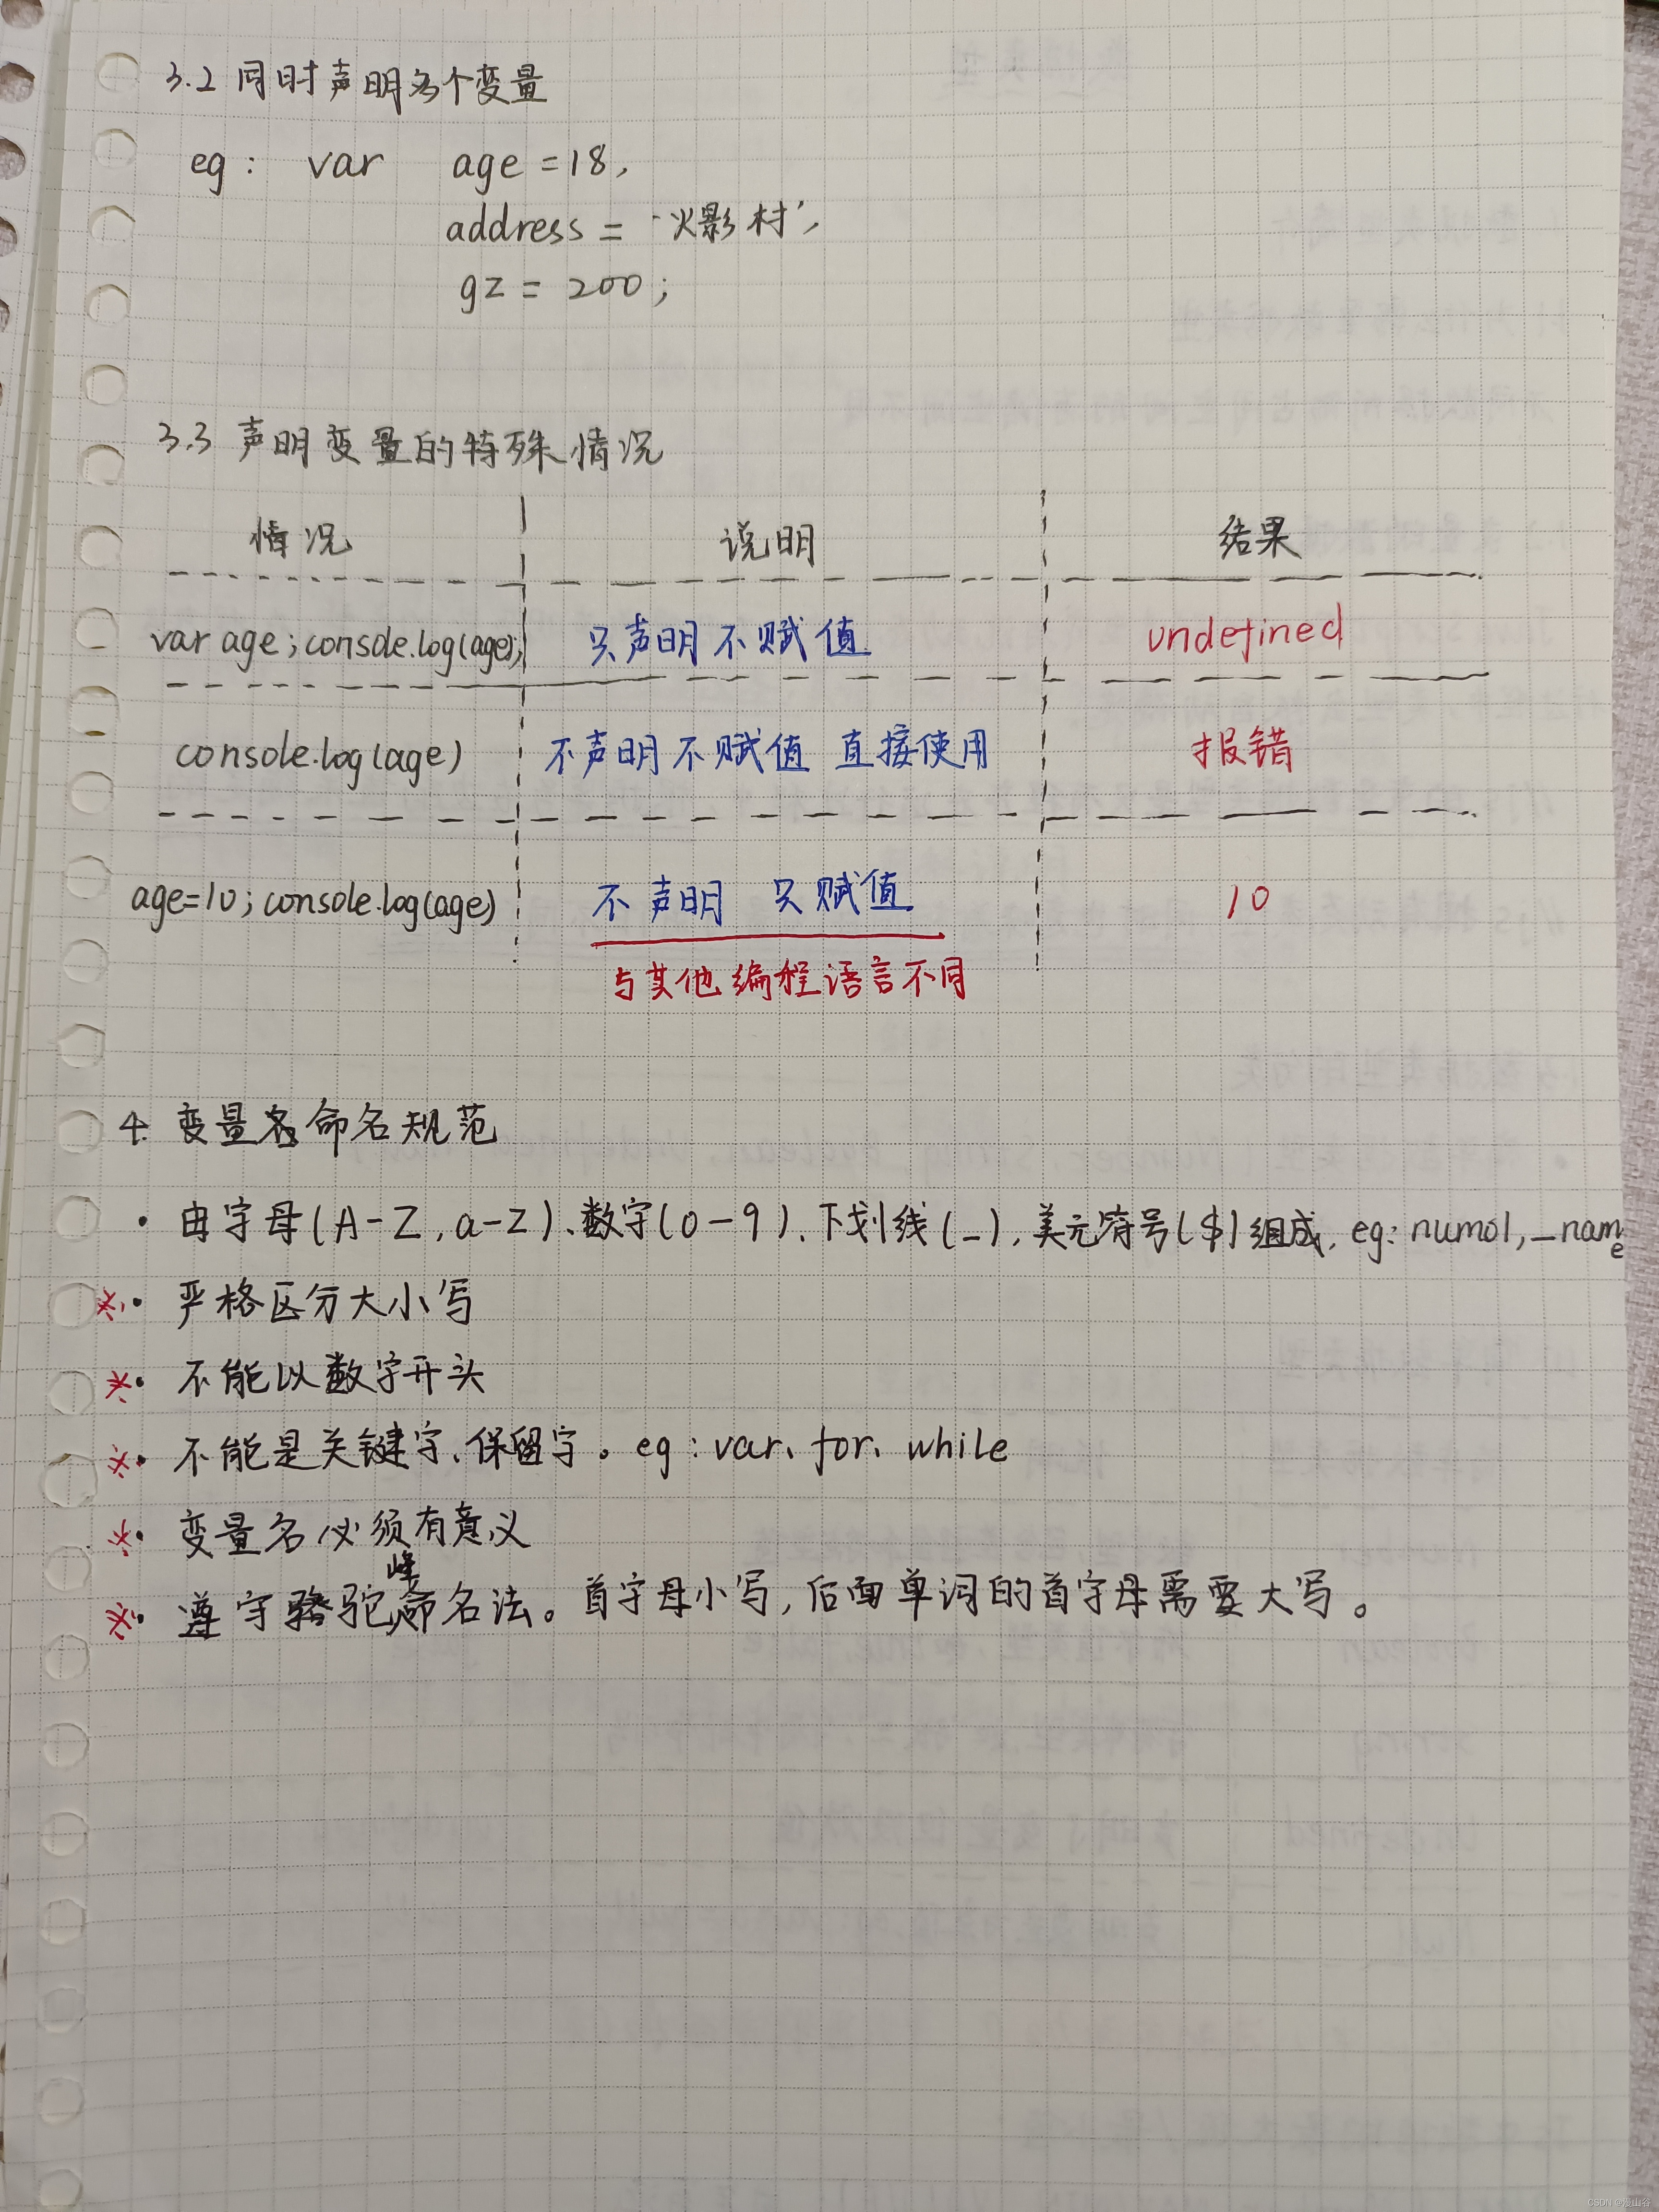 3.2 同时声明多个变量
eg: var age =18,
address = '火影村',
gz = 200;
3.3 声明变量的特殊情况
情况 说明 结果
var age;console.log(age); 只声明不赋值 undefined
console.log(age) 不声明不赋值 直接使用 报错
age=10;console.log(age) 不声明 只赋值 10
与其他编程语言不同
4. 变量名命名规范
· 由字母(A-Z,a-z)、数字(0-9)、下划线(_),美元符号($)组成,eg: num01,_name
※· 严格区分大小写
※· 不能以数字开头
※· 不能是关键字、保留字。eg:var、for、while
※· 变量名必须有意义
※· 遵守骆驼峰命名法。首字母小写,后面单词的首字母需要大写。
CSDN @漫山谷